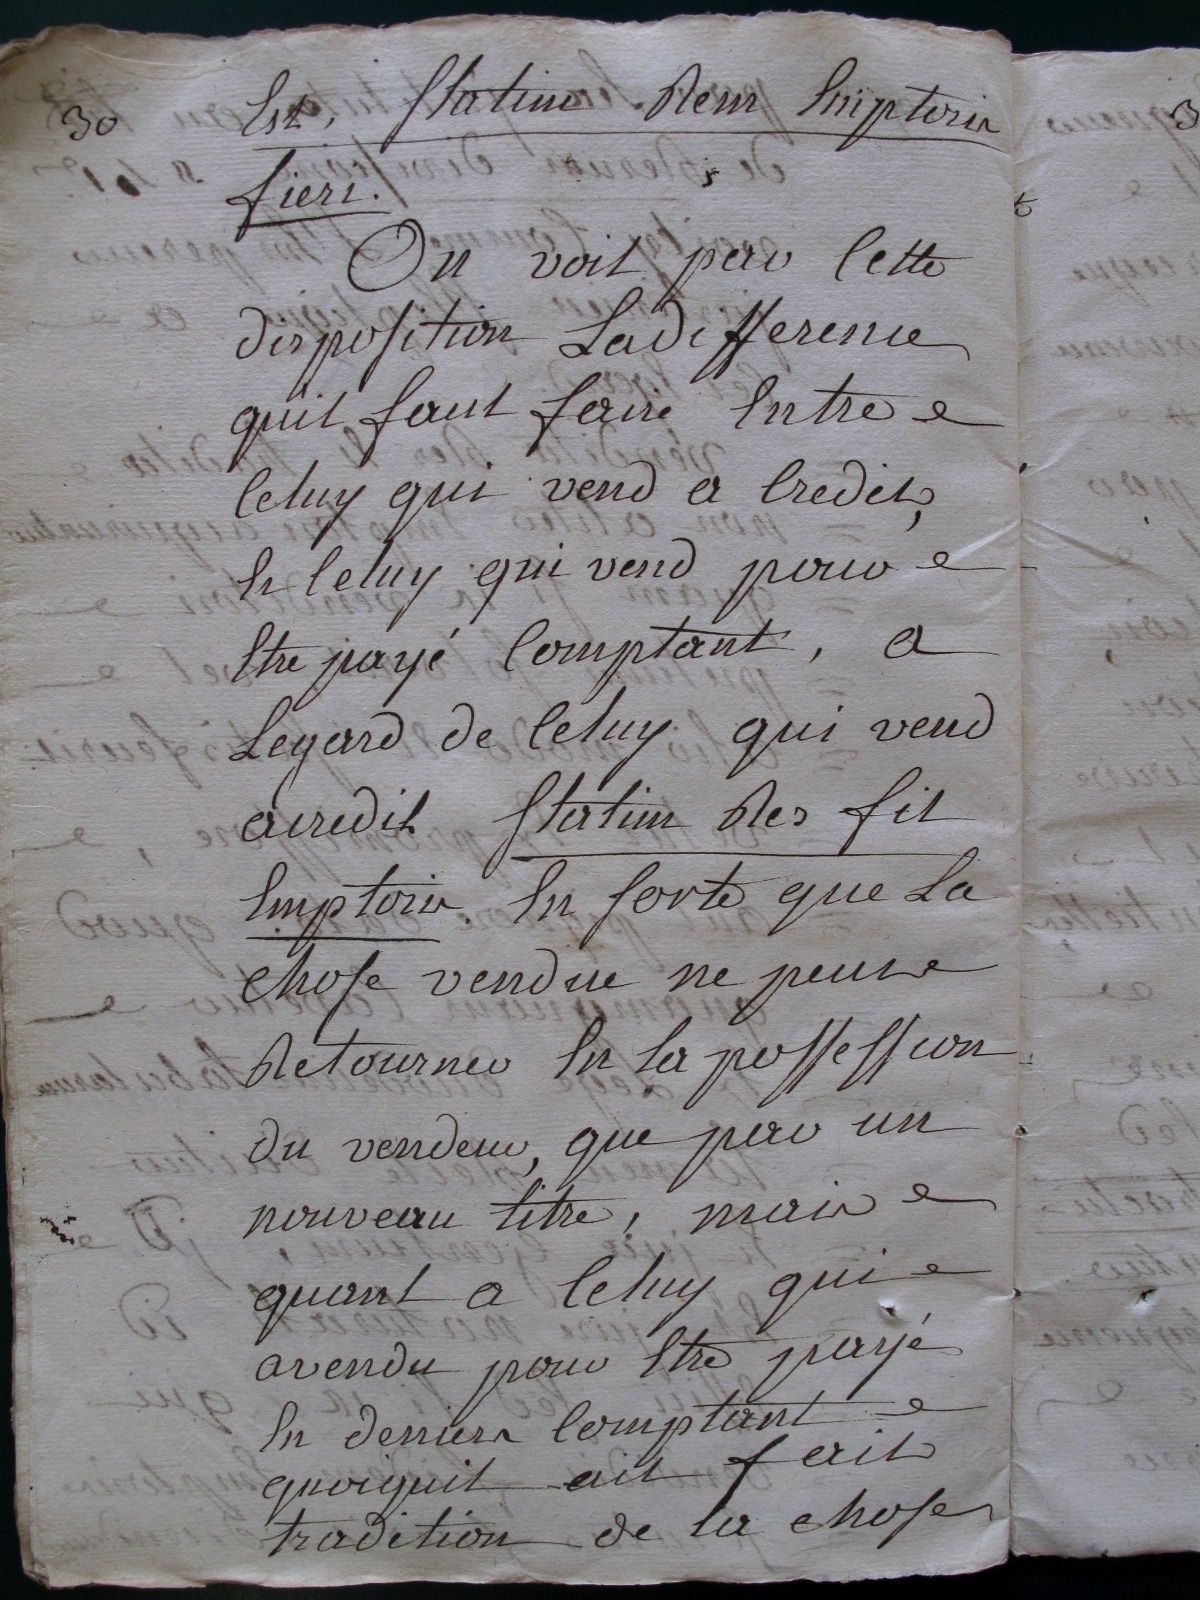 30
Est, statim Rem Emptoris
fieri.
On voit par cette
disposition La difference
quil faut faire Entre
celuy qui vend a credit,
En celuy qui vend pour
Etre payé comptant, a
Legard de celuy qui vend
acredit statim Res fit
Emptoris. En sorte que La
chose vendue ne peut
Retourner En la possession
du vendeur, que par un
nouveau titre, mais
quant a celuy qui
avendu pour Etre payé
En deniers comptant
quoiquil ait fait
tradition de la chose